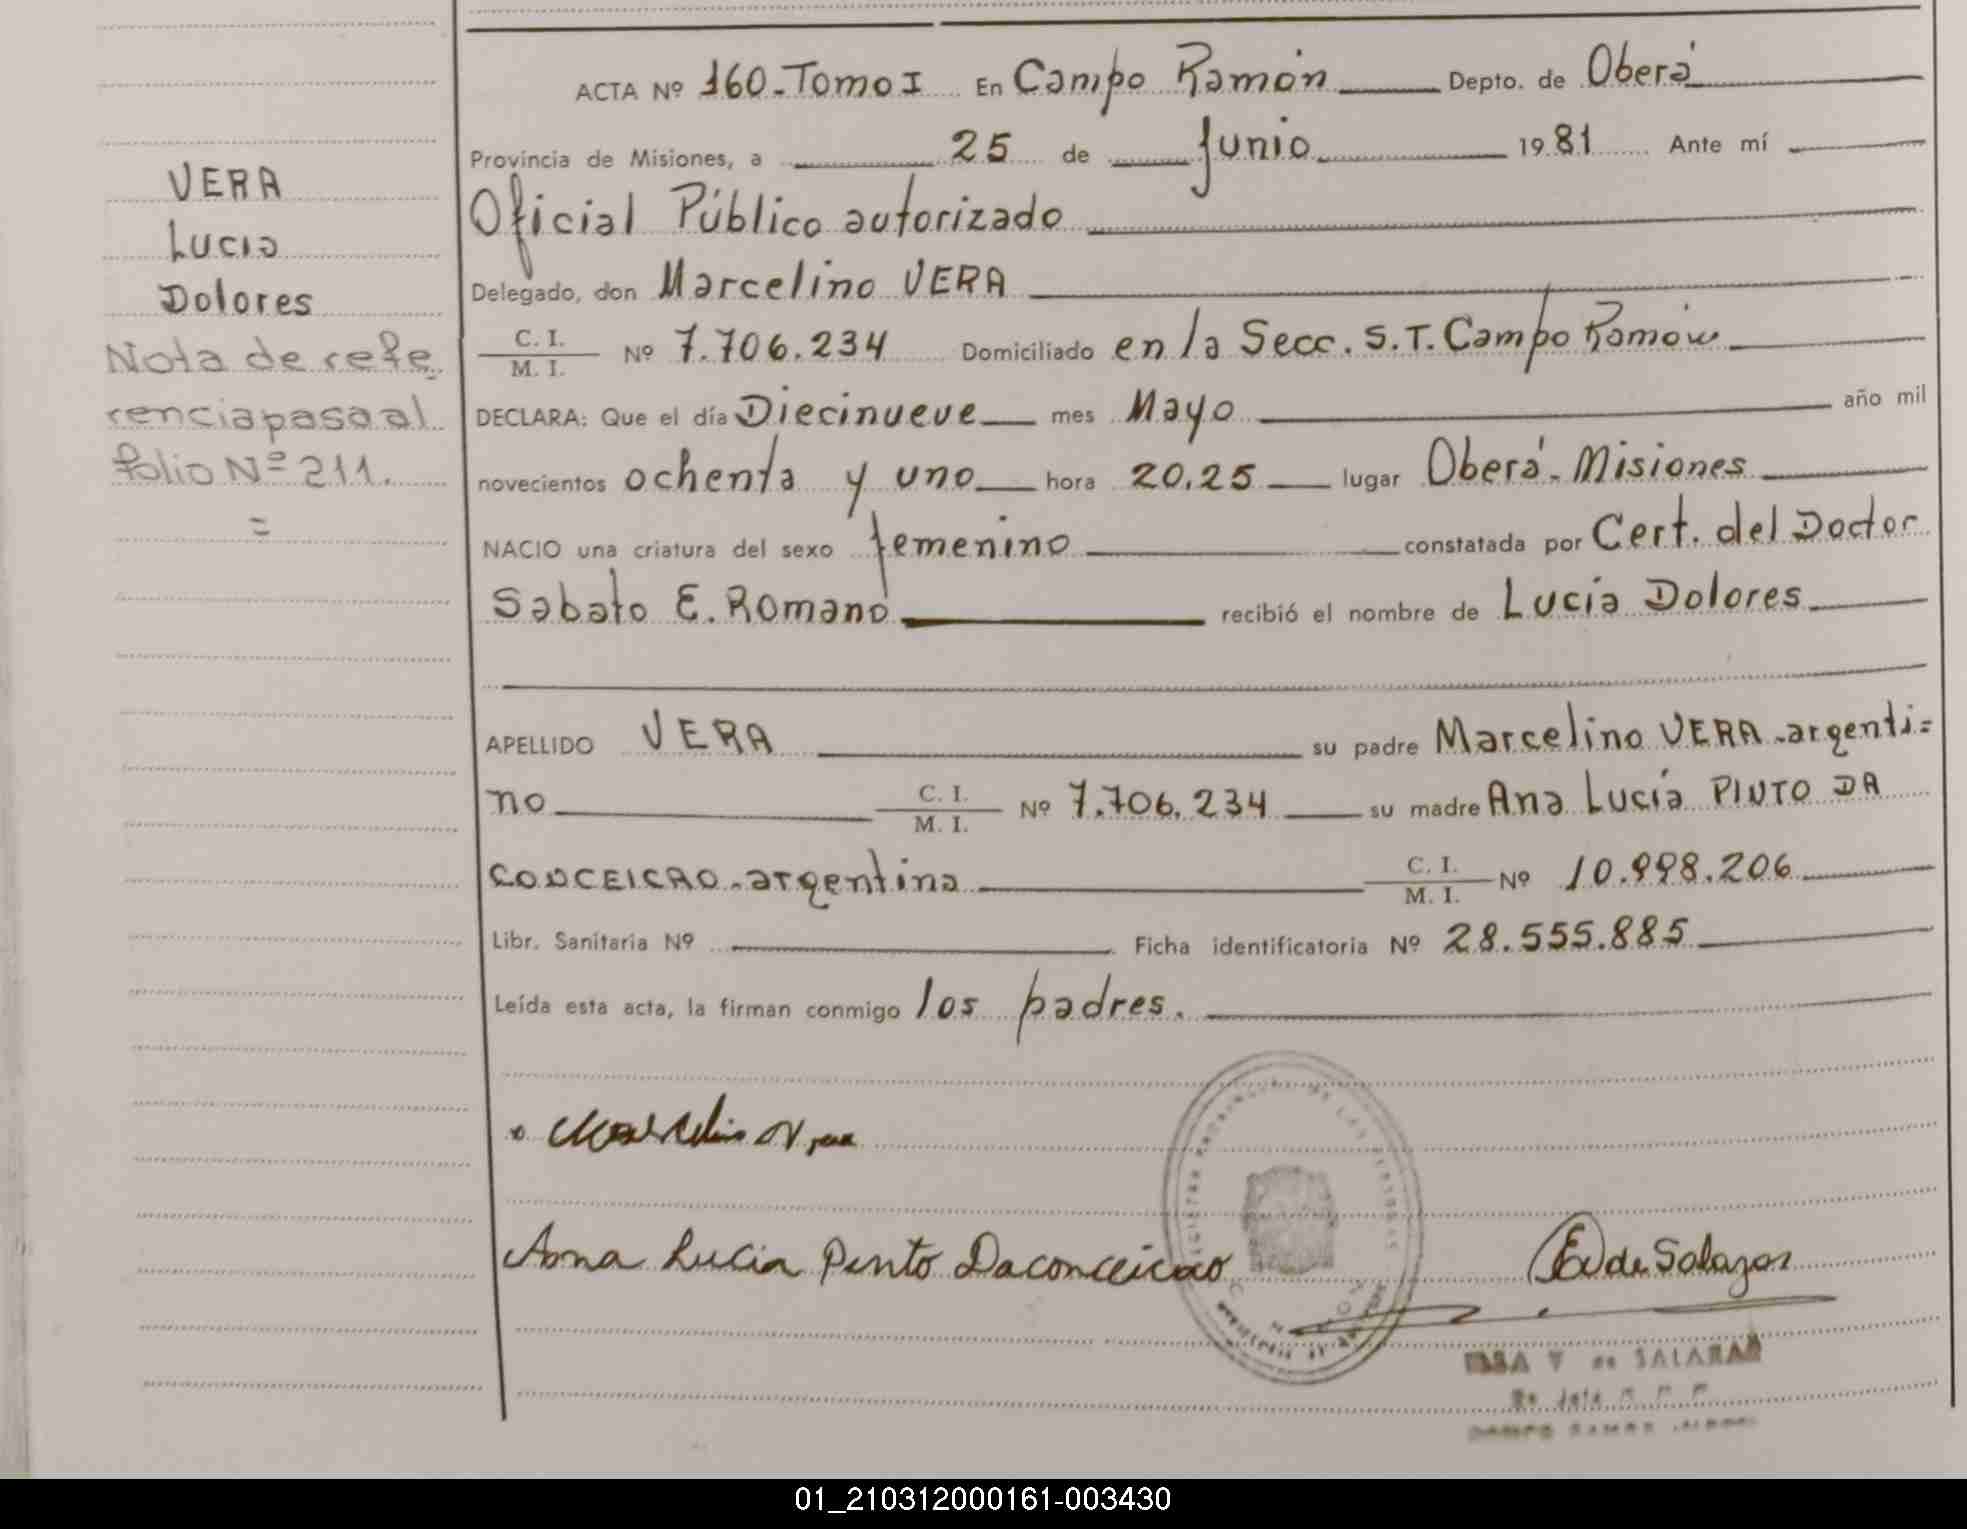 VERA
Lucia
Dolores
Nota de refe
rencia pasa al
folio Nº 211.
=
ACTA Nº 160-Tomo I En Campo Ramón Depto. de Oberá
Provincia de Misiones, a 25 de Junio 1981 Ante mí
Oficial Público autorizado
Delegado, don Marcelino VERA
C. I.
M. I. Nº 7.706.234 Domiciliado en la Secc. S.T. Campo Ramón
DECLARA: Que el día Diecinueve mes Mayo año mil
novecientos ochenta y uno hora 20,25 lugar Oberá-Misiones
NACIO una criatura del sexo femenino constatada por Cert. del Doctor
Sabato E. Romano recibió el nombre de Lucia Dolores
APELLIDO VERA su padre Marcelino VERA-argenti=
no C. I. M. I. Nº 7.706.234 su madre Ana Lucía PINTO DA
CONCEICAO-argentina C. I. M. I. Nº 10.998.206
Libr. Sanitaria Nº Ficha identificatoria Nº 28.555.885
Leída esta acta, la firman conmigo los padres.
Anna Lucia Pinto Daconceicao
E V de Salazar
V de SALAZAR
01_210312000161-003430